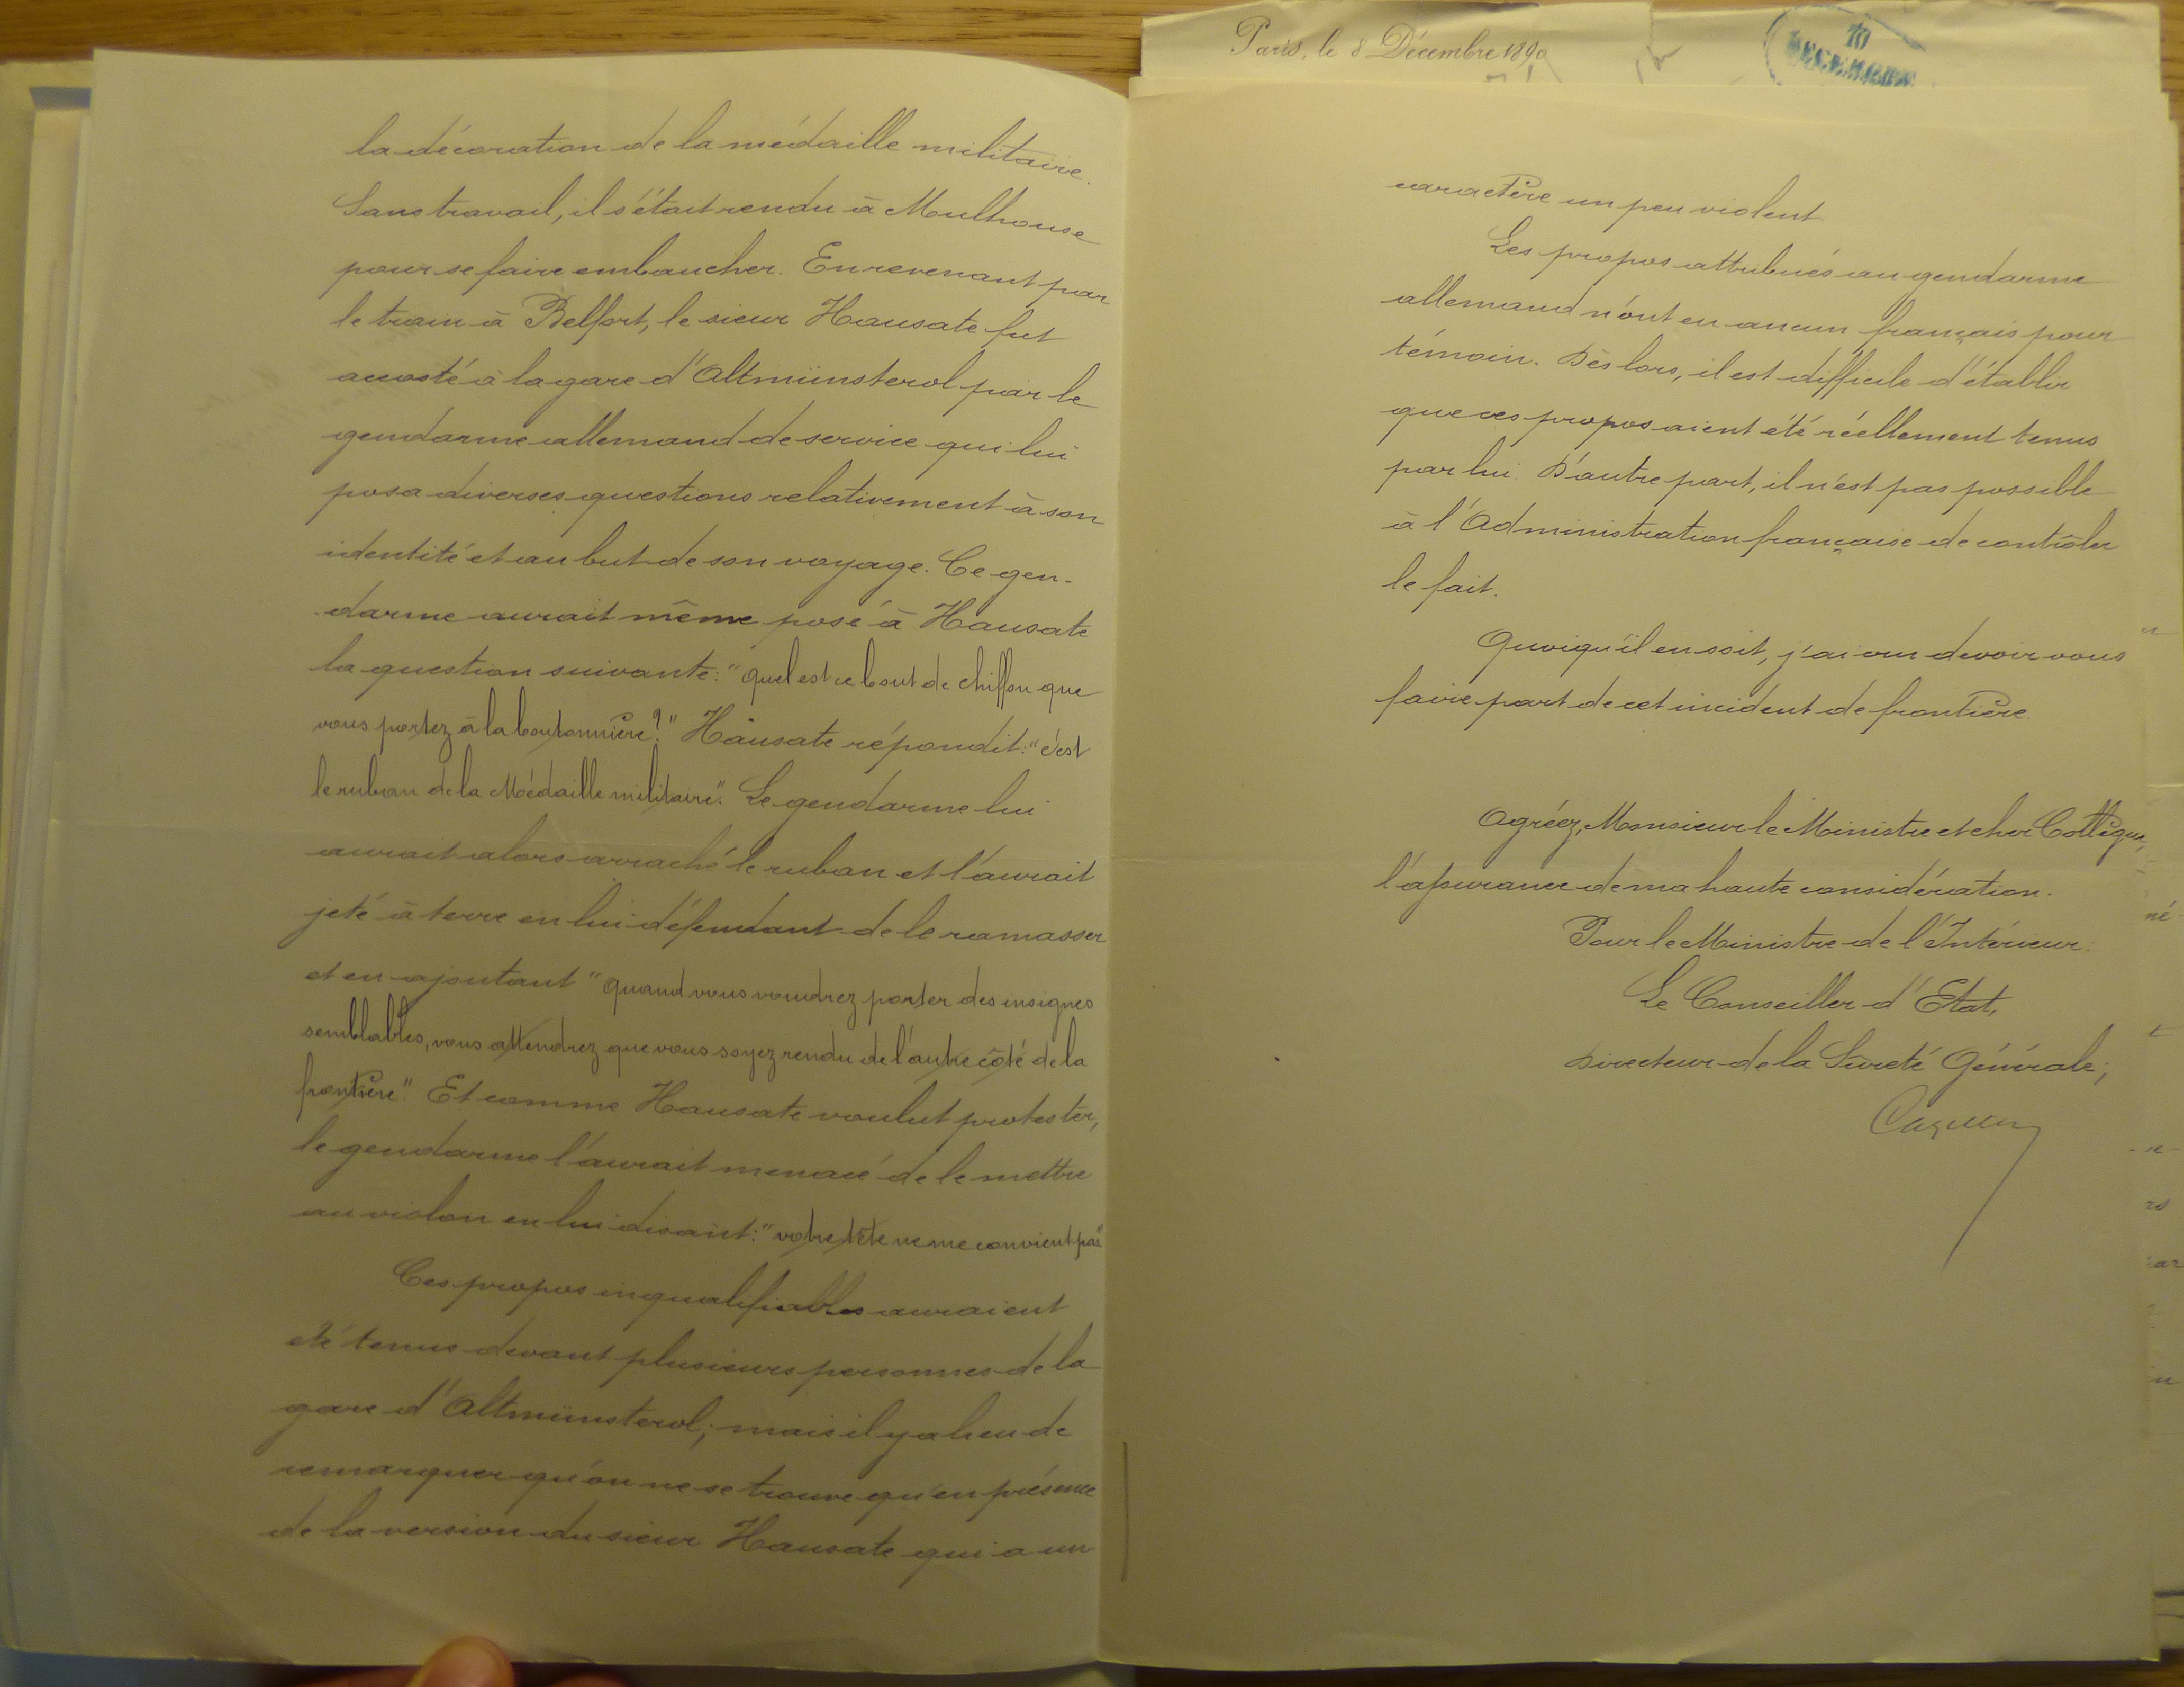 la décoration de la médaille militaire.
Sans travail, il s'était rendu à Mulhouse
pour se faire embaucher. En revenant par
le train à Belfort, le sieur Hausate fut
accosté à la gare d'Altmünsterol par le
gendarme allemand de service qui lui
posa diverses questions relativement à son
identité et au but de son voyage. Ce gen-
darme aurait même posé à Hausate
la question suivante: "Quel est ce bout de chiffon que
vous portez à la boutonnière?" Hausate répondit: "c'est
le ruban de la Médaille militaire". Le gendarme lui
aurait alors arraché le ruban et l'aurait
jeté à terre en lui défendant de le ramasser
et en ajoutant "quand vous voudrez porter des insignes
semblables, vous attendrez que vous soyez rendu de l'autre côté de la
frontière". Et comme Hausate voulut protester,
le gendarme l'aurait menacé de le mettre
au violon en lui disant: "votre tête ne me convient pas"
Ces propos inqualifiables auraient
été tenus devant plusieurs personnes de la
gare d'Altmünsterol; mais il y a lieu de
remarquer qu'on ne se trouve qu'en présence
de la version du sieur Hausate qui a un
Paris, le 8 Décembre 1890
10
DECEMBRE
caractère un peu violent
Les propos attribués au gendarme
allemand n'ont eu aucun français pour
témoin. Dès lors, il est difficile d'établir
que ces propos aient été réellement tenus
par lui. D'autre part, il n'est pas possible
à l'Administration française de contrôler
le fait.
Quoiqu'il en soit, j'ai cru devoir vous
faire part de cet incident de frontière.
Agréez, Monsieur le Ministre et cher Collègue,
l'assurance de ma haute considération.
Pour le Ministre de l'Intérieur:
Le Conseiller d'Etat,
Directeur de la Sûreté Générale;